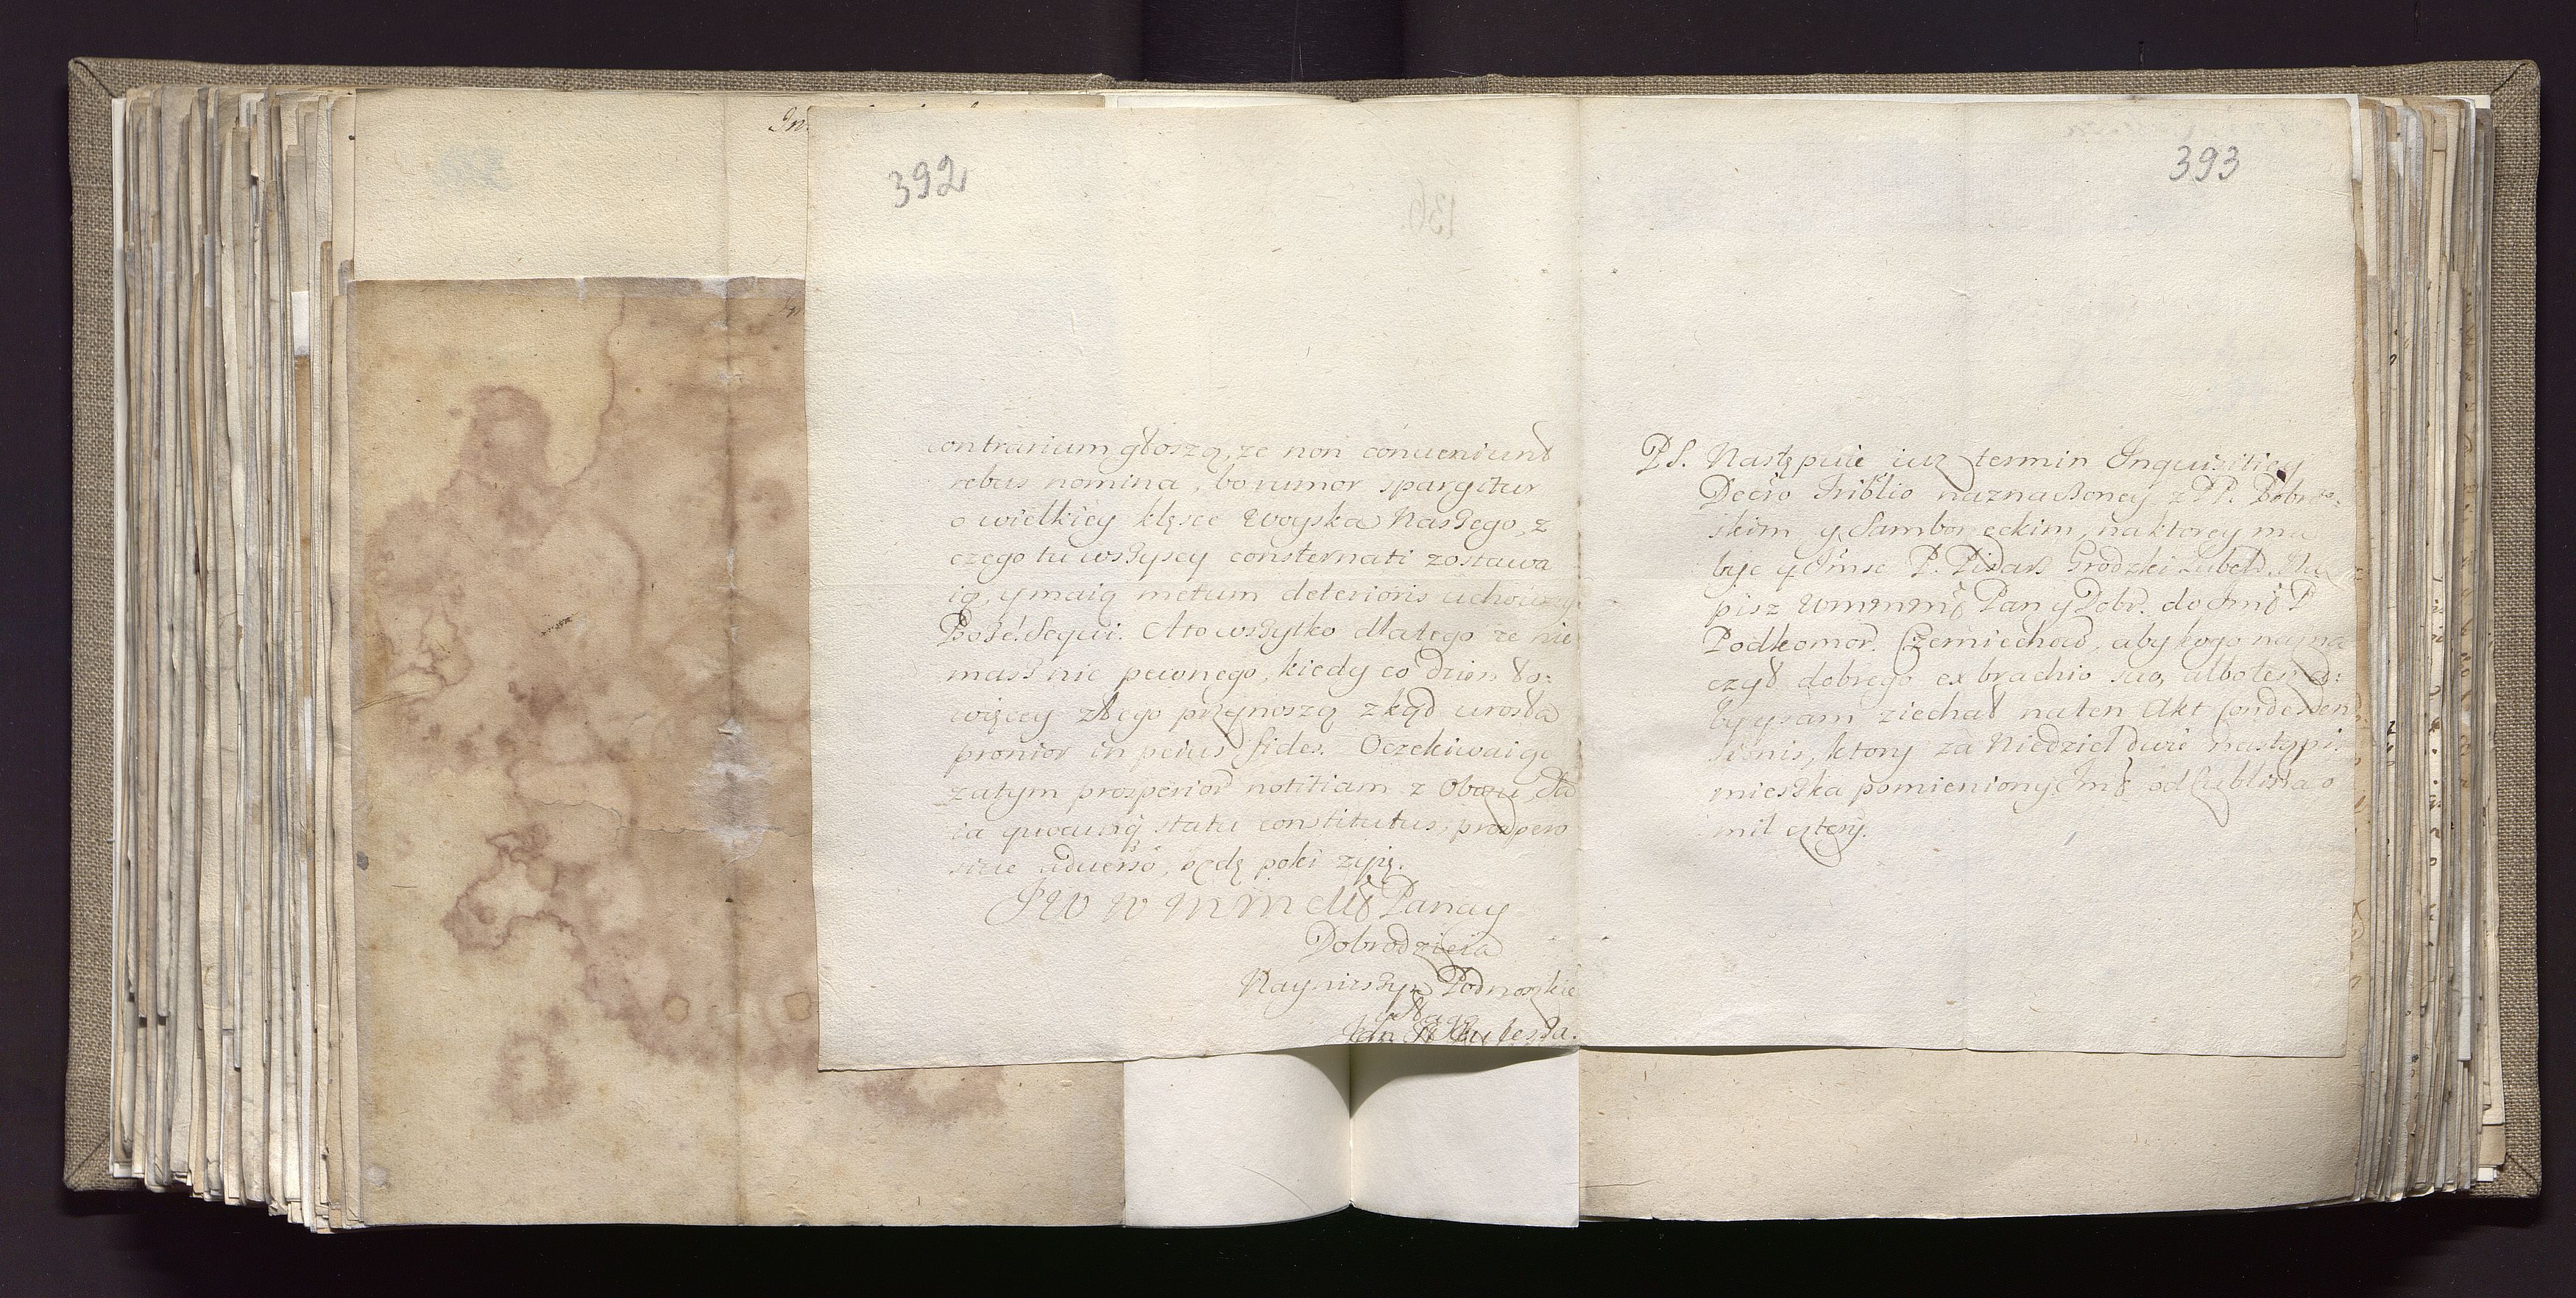 392
contrarium głoszą, ze non conueniunt
rebus nomina, bo rumor spargitur
o wielkiey klęsce Woyska Naszego, z
czego tu wszyscy consternati zostawa
ią, y maią metum deterioris uchoway
Boże! sequi. A to wszytko dlatego ze nie
masz nic pewnego, kiedy co dzien to=
więcey złego przynoszą zkąd urosła
pronior in peius fides. Oczekiwaiąc
zatym prosperior notitiam z Obozu,
ia quocunq statu constitutus, prospero
siue aduerso, będę poki zyię.
JW W M M Mł Pana y
Dobrodzieia
Nayniższym Podnoszkie
Jan
393
PS. Następuie iuz termin Inquisitiey
Decio Triblio naznaczoney z PP. Dobro=
skim y Samboreckim, na ktorey ma
byc y Jmsc P. Pisarz Grodzki Lubel.
pisz Wmmmł Pan y Dobr. do Jmł P
Podkomor. aby kogo nazna
czył dobrego ex brachio suo, albo tez
by y sam ziechał na ten Akt Condescen
sionis, ktory za Niedziel dwie nastąpi.
mieszka pomieniony Jmł od Lublina o
mil cztery.